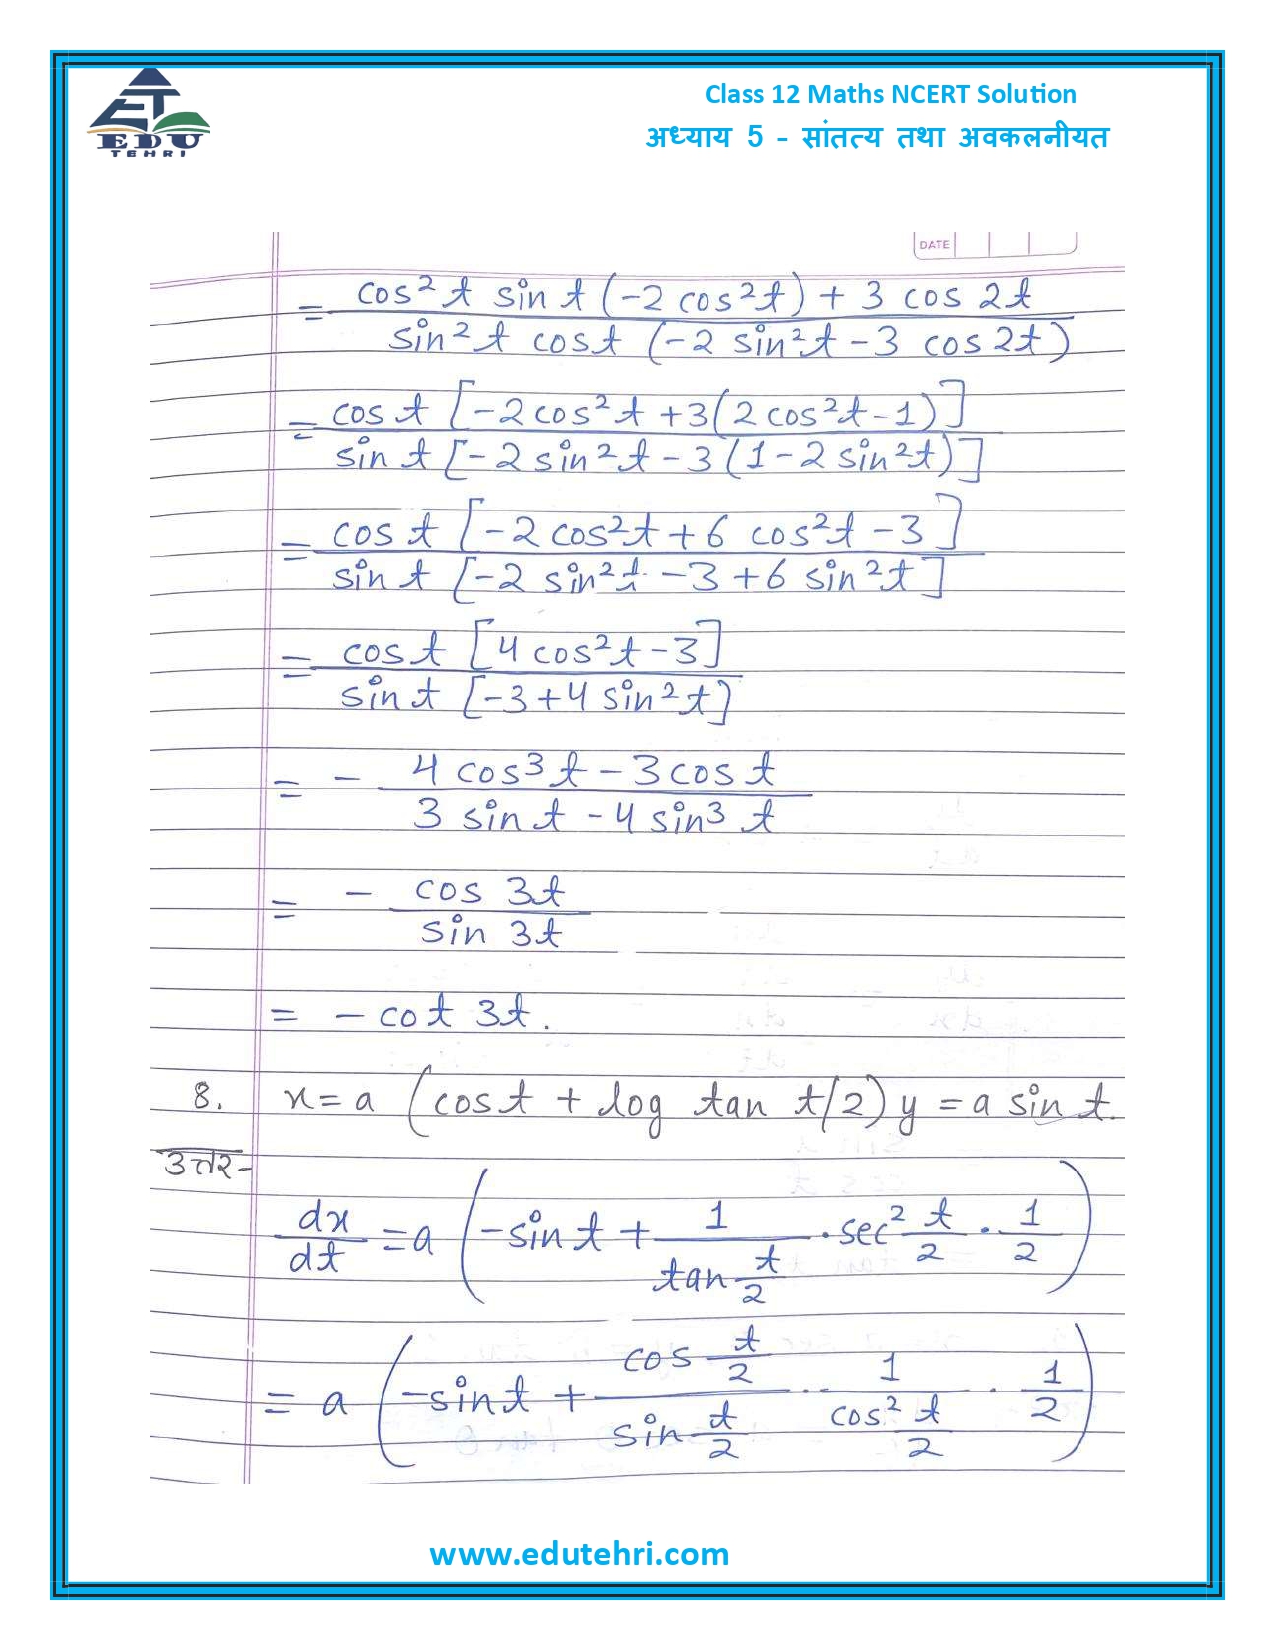 EDU
TEHRI
Class 12 Maths NCERT Solution
अध्याय 5 - सांतत्य तथा अवकलनीयत
DATE
= cos² t sin t (-2 cos²t) + 3 cos 2t / sin² t cos t (-2 sin²t - 3 cos 2t)
= cos t [-2 cos² t + 3(2 cos²t - 1)] / sin t [-2 sin² t - 3 (1 - 2 sin²t)]
= cos t [-2 cos²t + 6 cos²t - 3] / sin t [-2 sin² t - 3 + 6 sin²t]
= cos t [4 cos²t - 3] / sin t [-3 + 4 sin²t]
= - 4 cos³ t - 3 cos t / 3 sin t - 4 sin³ t
= - cos 3t / sin 3t
= - cot 3t.
8. x = a (cos t + log tan t/2) y = a sin t.
उत्तर-
dx/dt = a (-sin t + 1/tan t/2 · sec² t/2 · 1/2)
= a (-sin t + cos t/2 / sin t/2 · 1/cos² t/2 · 1/2)
www.edutehri.com